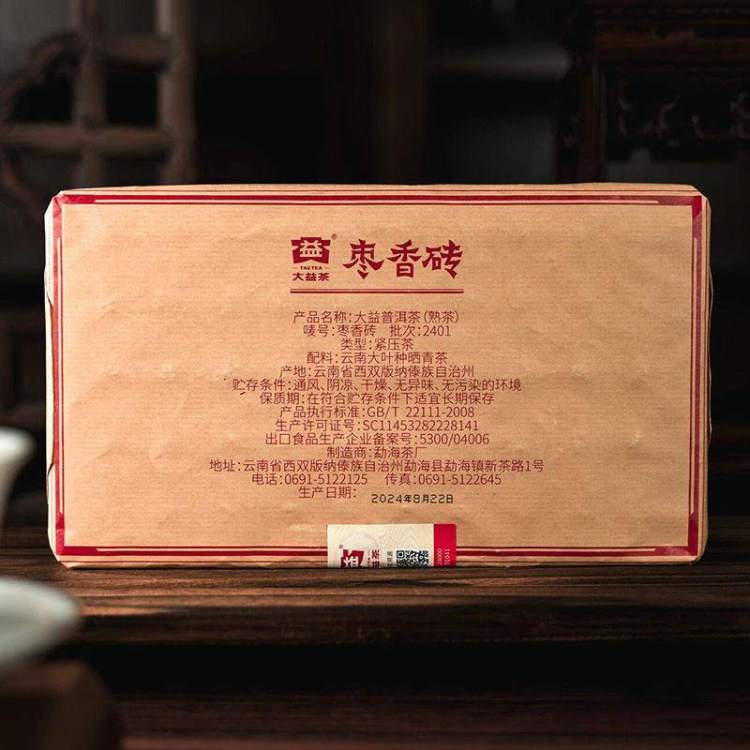 益
®
TAETEA
大益茶
枣香砖
产品名称:大益普洱茶(熟茶)
唛号:枣香砖 批次:2401
类型:紧压茶
配料:云南大叶种晒青茶
产地:云南省西双版纳傣族自治州
贮存条件:通风、阴凉、干燥、无异味、无污染的环境
保质期:在符合贮存条件下适宜长期保存
产品执行标准:GB/T 22111-2008
生产许可证号:SC11453282228141
出口食品生产企业备案号:5300/04006
制造商:勐海茶厂
地址:云南省西双版纳傣族自治州勐海县勐海镇新茶路1号
电话:0691-5122125 传真:0691-5122645
生产日期: 2024年8月22日
益